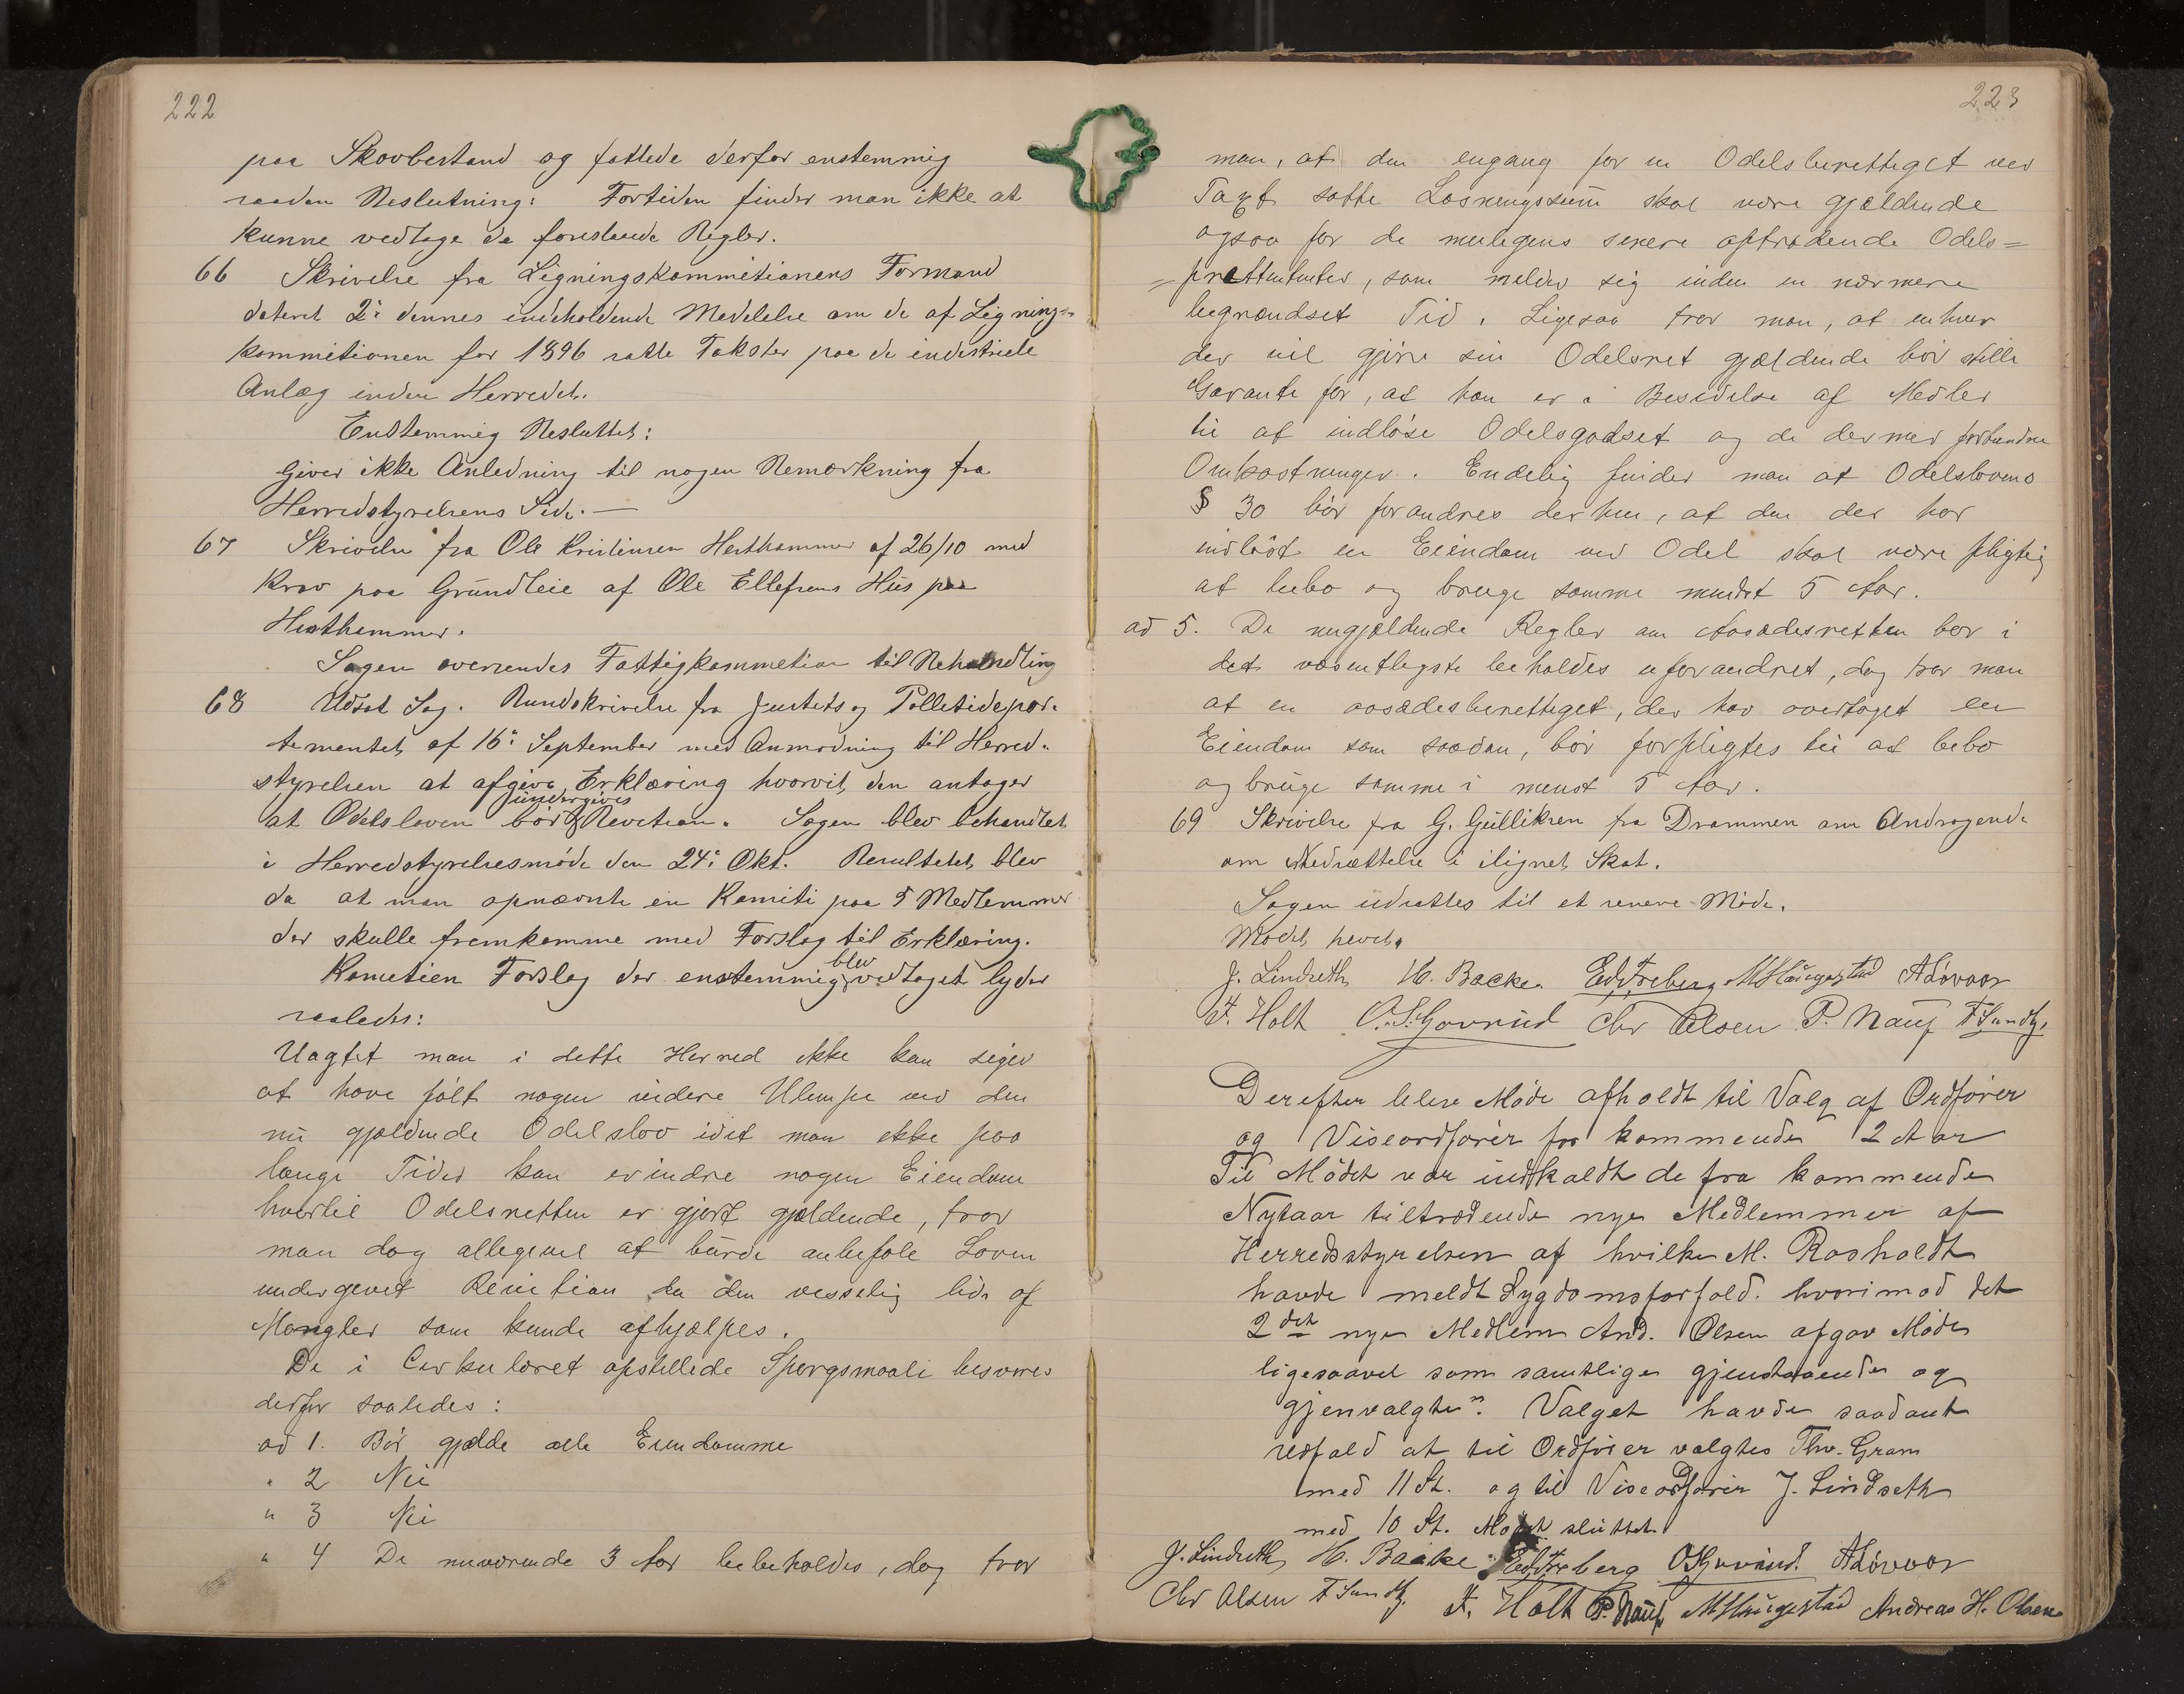 222
paa Skovbestand og fattede derfor enstemmig
saadan Beslutning: Fortiden finder man ikke at
kunne vedtage de foreslaaede Regler.
66 Skrivelse fra Ligningskommitionens Formand
dateret 2: dennes indeholdende Medelelse om de af Lignings
kommitionen for 1896 satte Takster paa de industriele
Anlæg inden Herredet.
Enstemmig Besluttet:
Giver ikke Anledning til nogen Bemærkning fra
Herredstyrelsens Side. —
67 Skrivelse fra Ole Kristensen Hesthammer af 26/10 med
Krav paa Grundleie af Ole Ellefsens Hus paa
Hesthammer.
Sagen oversendes Fattigkommetion til Behandling
68 Udsat Sag. Rundskrivelse fra Justets og Polletidepar-
tementet af 16: September med Anmodning til Herred-
styrelsen at afgive Erklæring hvorvit den antager
at Odelsloven bør undergives Revetion. Sagen blev behandlet
i Herredstyrelsesmøde den 24: Okt. Resultatet blev
da at man opnævnte en Komite paa 5 Medlemmer
der skulle fremkomme med Forslag til Erklæring.
Kometien Forslag der enstemmig blev vedtaget lyder
saaledes:
Uagtet man i dette Herred ikke kan siges
at have følt nogen videre Ulempe ved den
nu gjældende Odelslov idet man ikke paa
lange Tider kan erindre nogen Eiendom
hvortil Odelsretten er gjort gjældende, tror
man dog allegevel at burde anbefale Loven
undergivet Revition da den vesselig lider af
Mangler som kunde afhjælpes.
De i Cirkulæret opstillede Spørgsmaale besvares
derfor saaledes:
ad 1. Bør gjælde alle Eiendomme
" 2 Nei
" 3 Nei
" 4 De nuværende 3 Aar bebeholdes, dog tror
223
man, at den engang for en Odelsberettiget ved
Taxt satte Løsningssum skal være gjældende
ogsaa for de muligens senere optrædende Odels=
=prættententer, som melder sig inden en nærmere
begrændset Tid. Ligesaa tror man, at enhver
der vil gjøre sin Odelsret gjældende bør stille
Garanti for, at han er i Besidelse af Medler
til at indløse Odelsgodset og de dermed forbundne
Omkostninger. Endelig finder man at Odelslovens
§ 30 bør forandres derhen, at den der har
indløst en Eiendom ved Odel skal være pligtig
at bebo og bruge samme mindst 5 Aar.
ad 5. De nugjældende Regler om Aasædesretten bør i
det væsentligste beholdes uforandret, dog tror man
at en aasædesberettiget, der har overtaget en
Eiendom som saadan, bør forpligtes til at bebo
og bruge samme i mindst 5 Aar.
69 Skrivelse fra G. Gulliksen fra Drammen om Andragende
om Nedsættelse i ilignet Skat.
Sagen udsættes til et senere Møde.
Mødet hævet.
J. Lindseth H. Backe. Ed. Freberg M Haugestad ALøvaas
F. Holt O. S. Govrud Chr Olsen P. Nauf F Sundby
Derefter blev Møde afholdt til Valg af Ordfører
og Viseordfører for kommende 2 Aar
Til Mødet var indkaldt de fra kommende
Nytaar tiltrædende nye Medlemmer af
Herredsstyrelsen af hvilke M. Rosholdt
havde meldt Sygdomsforfald. hvorimod det
2det nye Medlem And. Olsen afgav Møde
ligesaavel som samtlige gjenstaaende og
gjenvalgte". Valget havde saadant
udfald at til Ordfører valgtes Thv. Gram
med 11 St. og til Viseordfører J. Lindseth
med 10 St. Mødet sluttet
J. Lindseth H. Backe Ed. Freberg ALøvaas
Chr Olsen F Sundby. F. Holt P. Nauf M Haugestad Andreas H. Olsen